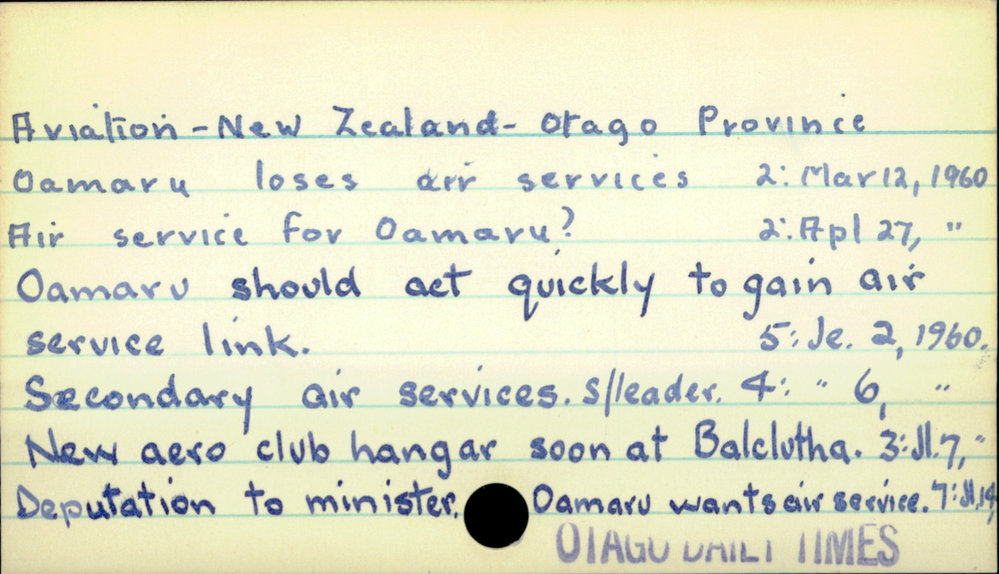 Aviation - New Zealand - Otago Province
Oamaru loses air services 2: Mar 12, 1960
Air service for Oamaru? 2: Apl 27, "
Oamaru should act quickly to gain air
service link. 5: Je. 2, 1960.
Secondary air services. S/leader. 4: " 6, "
New aero club hangar soon at Balclutha. 3: Jl. 7, "
Deputation to minister. Oamaru wants air service. 7: Jl. 14,
OTAGO DAILY TIMES